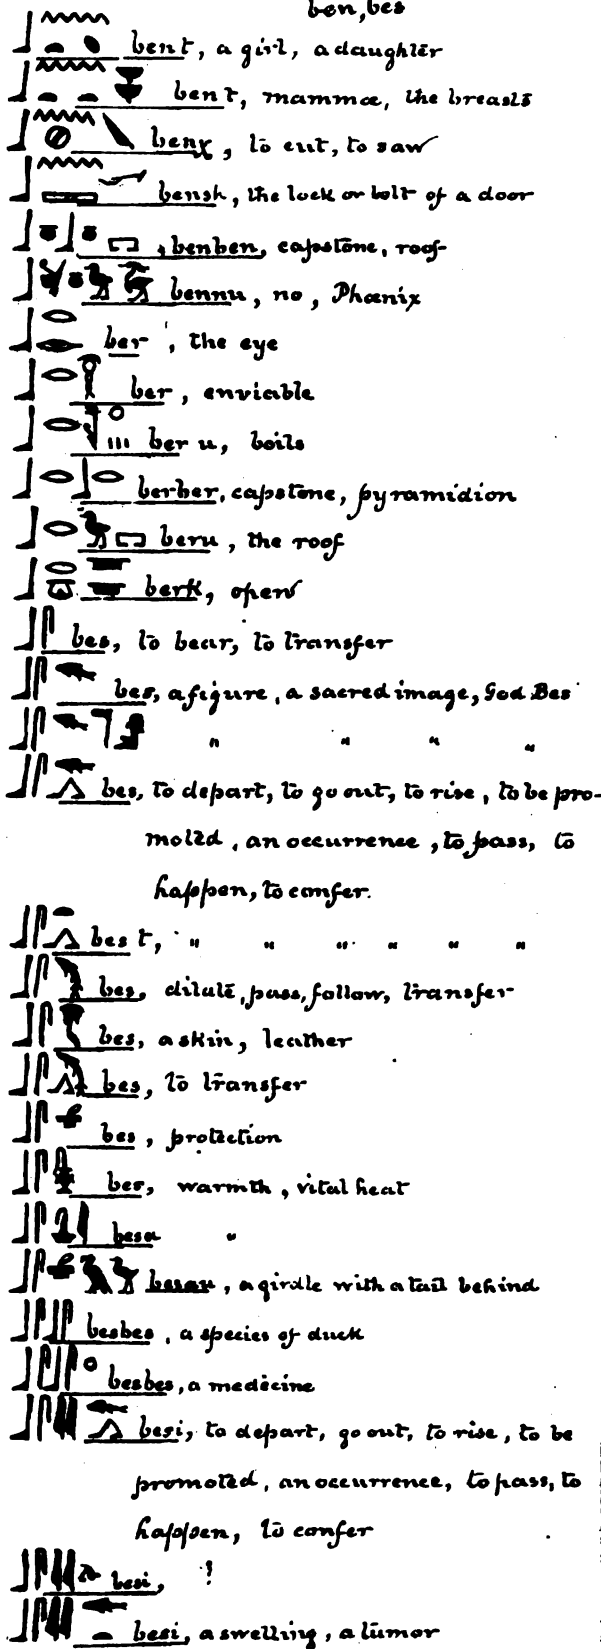 ben, bes
bent, a girl, a daughter
bent, mammæ, the breasts
benχ, to cut, to saw
bensh, the lock or bolt of a door
benben, capstone, roof
bennu, no, Phœnix
ber, the eye
ber, enviable
beru, boils
berber, capstone, pyramidion
beru, the roof
berk, open
bes, to bear, to transfer
bes, a figure, a sacred image, God Bes
" " " "
bes, to depart, to go out, to rise, to be pro-
moted, an occurrence, to pass, to
happen, to confer.
best, " " " " " "
bes, dilute, pass, follow, transfer
bes, a skin, leather
bes, to transfer
bes, protection
bes, warmth, vital heat
besa "
besau, a girdle with a tail behind
besbes, a species of duck
besbes, a medicine
besi, to depart, go out, to rise, to be
promoted, an occurrence, to pass, to
happen, to confer
besi, ?
besi, a swelling, a tumor